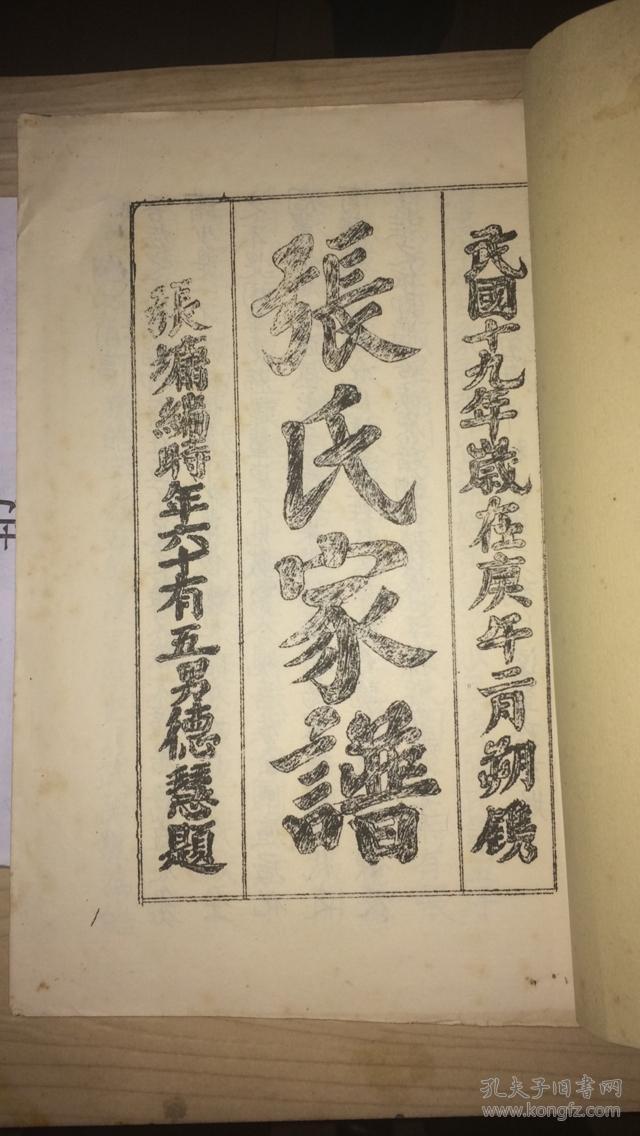 民國十九年歲在庚午二月朔鐫
張氏家譜
張墉編時年六十有五男德慧題
孔夫子旧书网
www.kongfz.com